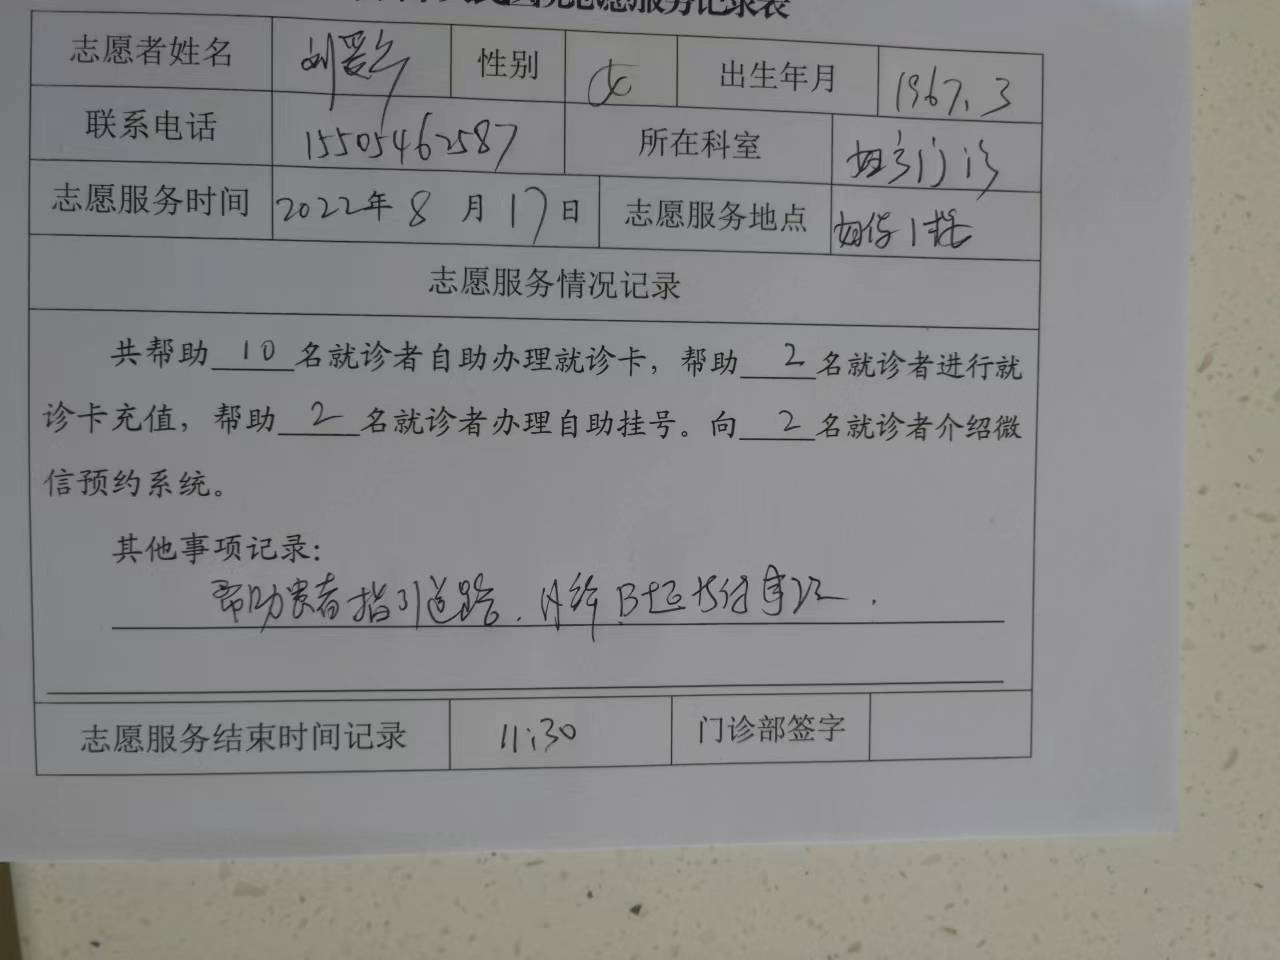 志愿服务记录表
志愿者姓名 刘爱 性别 女 出生年月 1967.3
联系电话 15505462587 所在科室 门诊
志愿服务时间 2022年8月17日 志愿服务地点 1楼
志愿服务情况记录
共帮助10名就诊者自助办理就诊卡，帮助2名就诊者进行就
诊卡充值，帮助2名就诊者办理自助挂号。向2名就诊者介绍微
信预约系统。
其他事项记录：
帮助患者指引道路.
志愿服务结束时间记录 11:30 门诊部签字